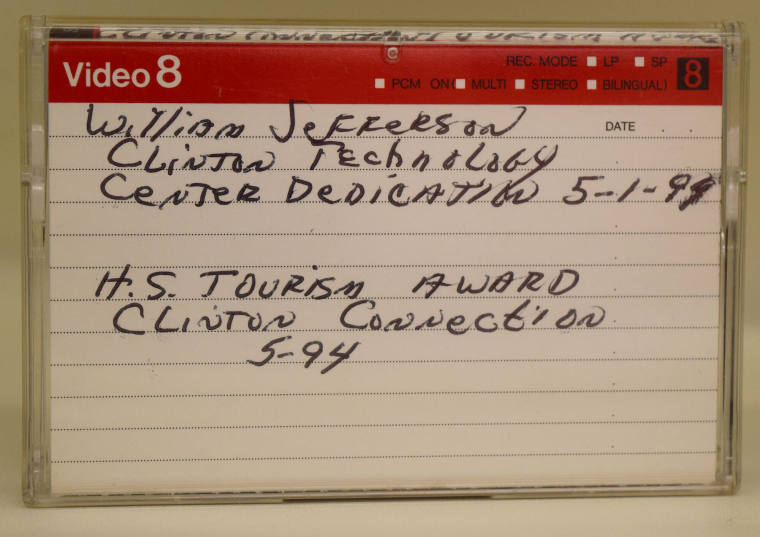 Video 8
REC. MODE LP SP
PCM ON ( MULTI STEREO BILINGUAL)
8
DATE
William Jefferson
Clinton Technology
Center Dedication 5-1-94
H.S. Tourism Award
Clinton Connection
5-94